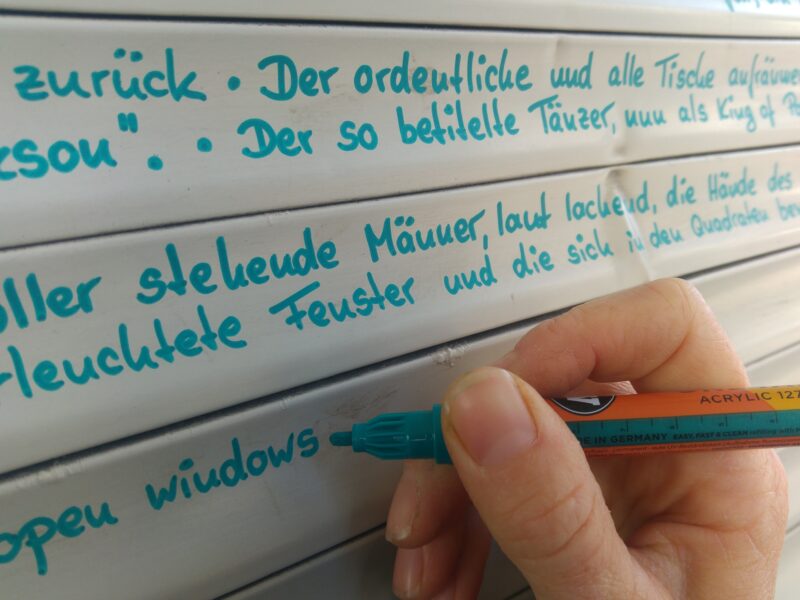 zurück • Der ordentliche und alle Tische aufräumen
kson". • Der so betitelte Tänzer, nun als King of
oller stehende Männer, laut lachend, die Hände des
rleuchtete Fenster und die sich in den Quadraten
open windows
ACRYLIC 127
MADE IN GERMANY EASY, FAST & CLEAN